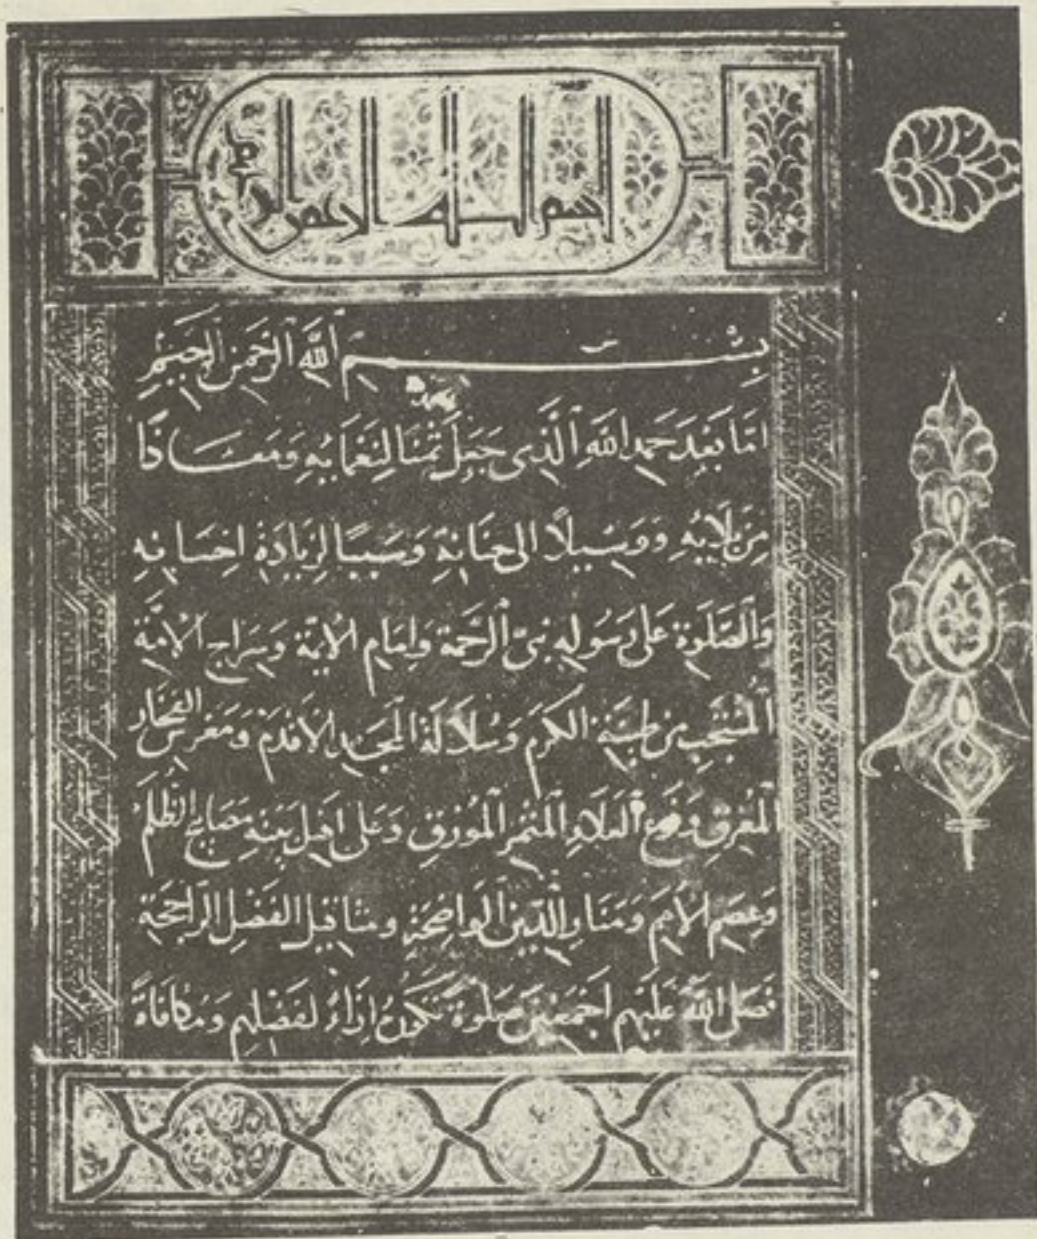 بسم الله الرحمن الرحيم
بِسْمِ اللهِ الرَّحْمنِ الرَّحِيمِ
امَّا بَعْدَ حَمْدِ اللهِ الَّذِي جَعَلَ الحَمْدَ ثَمَنًا لِنَعْمَائِهِ وَمَعَاذًا
مِن بَلَائِهِ وَوَسِيلًا الى جنَانِهِ وَسَبَبًا لِزِيَادَةِ اِحْسَانِهِ
وَالصَّلَوةِ عَلَى رَسُولِهِ نبىّ الرَّحْمَةِ وَامَامِ الائِمَّةِ وَسِرَاجِ الاُمَّةِ
المُنْتَجَبِ مِن طِينَةِ الكَرَمِ وَسُلاَلَةِ المَجْدِ الاَقْدَمِ وَمَغْرِسِ الفَخَارِ
المُعْرِقِ وَفَرْعِ العَلَاءِ المُثْمِرِ المُورِقِ وَعَلى اهْلِ بَيْتِهِ مَصَابِيحِ الظُّلَمِ
وَعِصَمِ الاُمَمِ وَمَنَارِ الدِّينِ الوَاضِحَةِ وَمثَاقِيلِ الفَضْلِ الرَّاجِحَةِ
فَصَلّى اللهُ عَلَيْهِم اَجْمَعِينَ صَلَوةً تَكُونُ اِزَاءً لفَضْلِهِم وَمُكَافَاةً